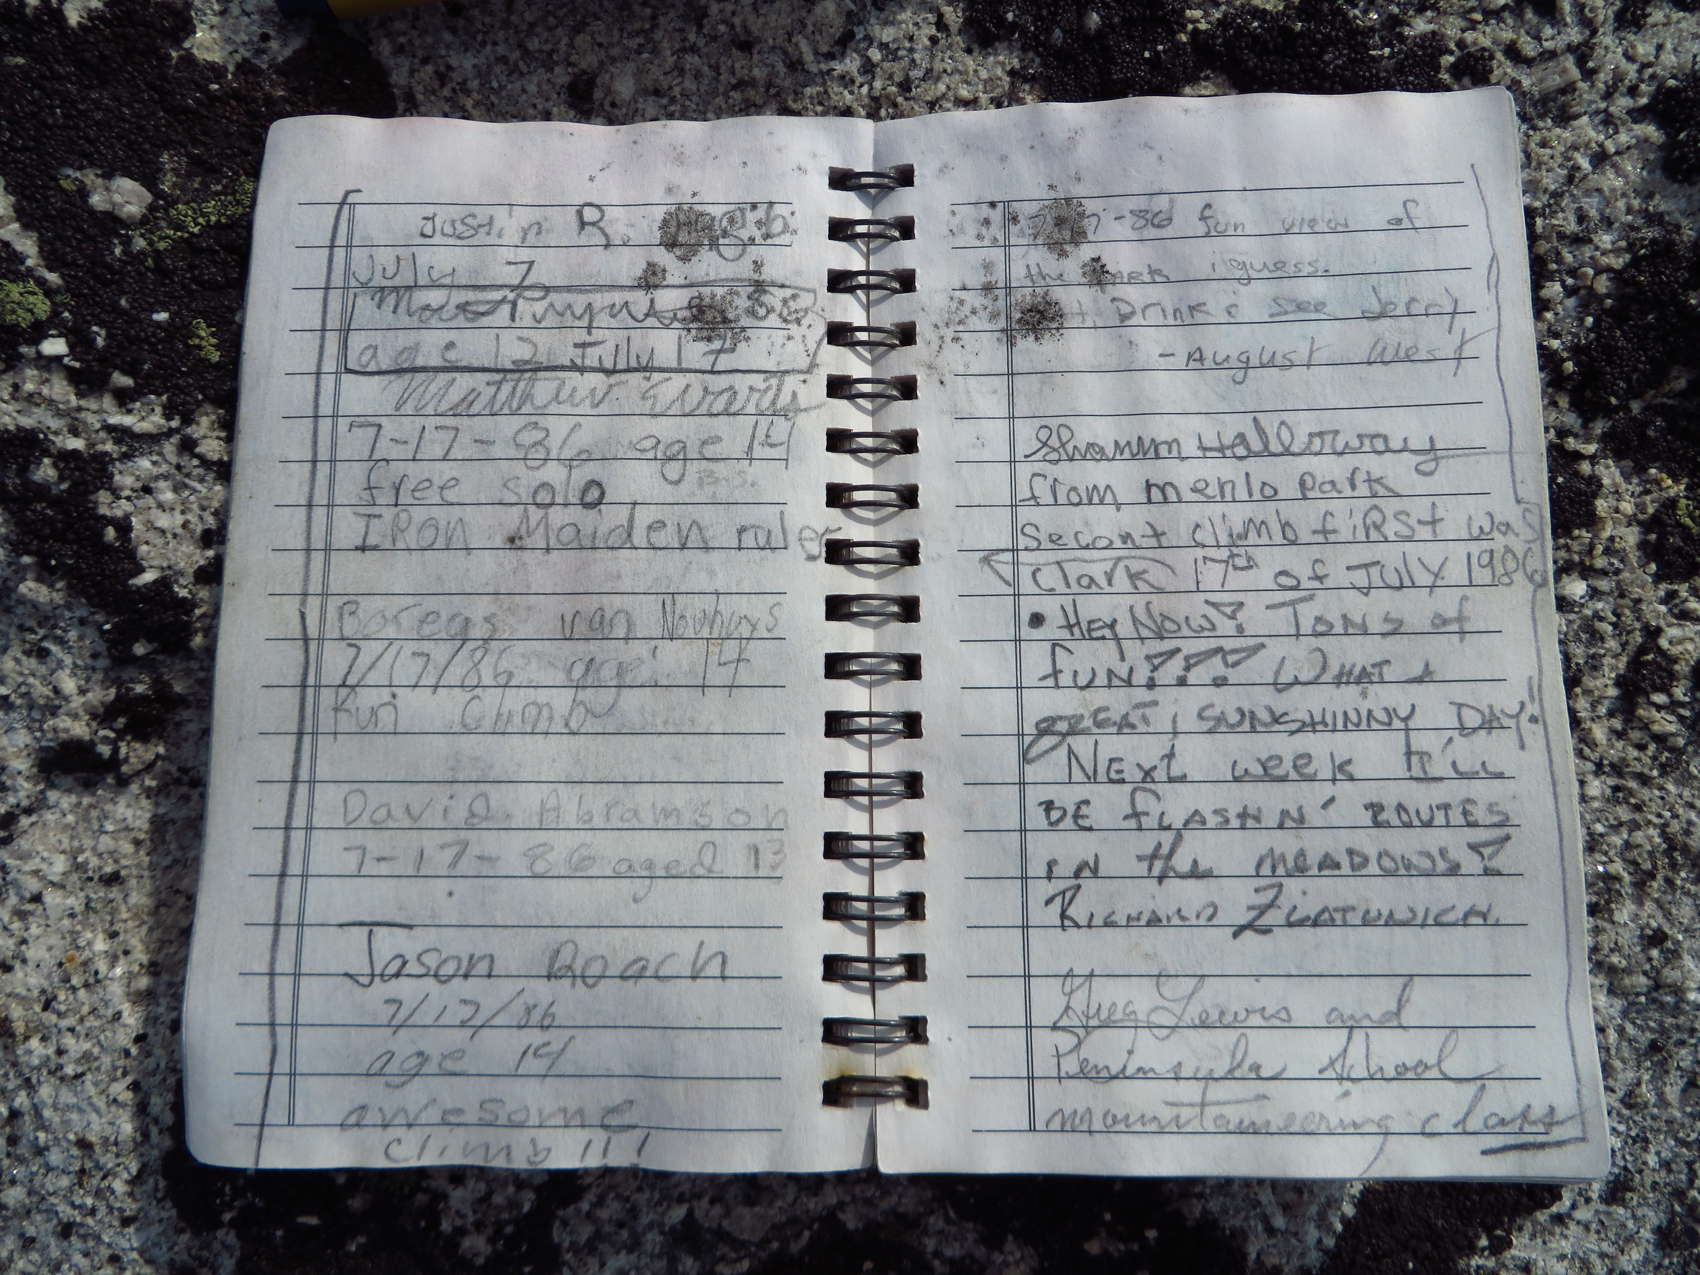 Justin R.
July 7
86
age 12 July 17
Matthew Evarts
7-17-86 age 14
free solo B.S.
IRon Maiden rules
Boreas van Nouhuys
7/17/86 age 14
fun Climb
David Abramson
7-17-86 aged 13
Jason Roach
7/17/86
age 14
awesome
climb!!!
-86 fun view of
the iguess.
Drink & See Jerry
-August West
Halloway
from menlo park
Second climb fiRSt was
Clark 17th of JULY 1986
• Hey Now! Tons of
fun!!! What a
great, sunshinny day!
Next week I'll
be flashn' routes
in the meadows!
Richard Zlatunich.
Greg Lewis and
Peninsula School
mountaineering class